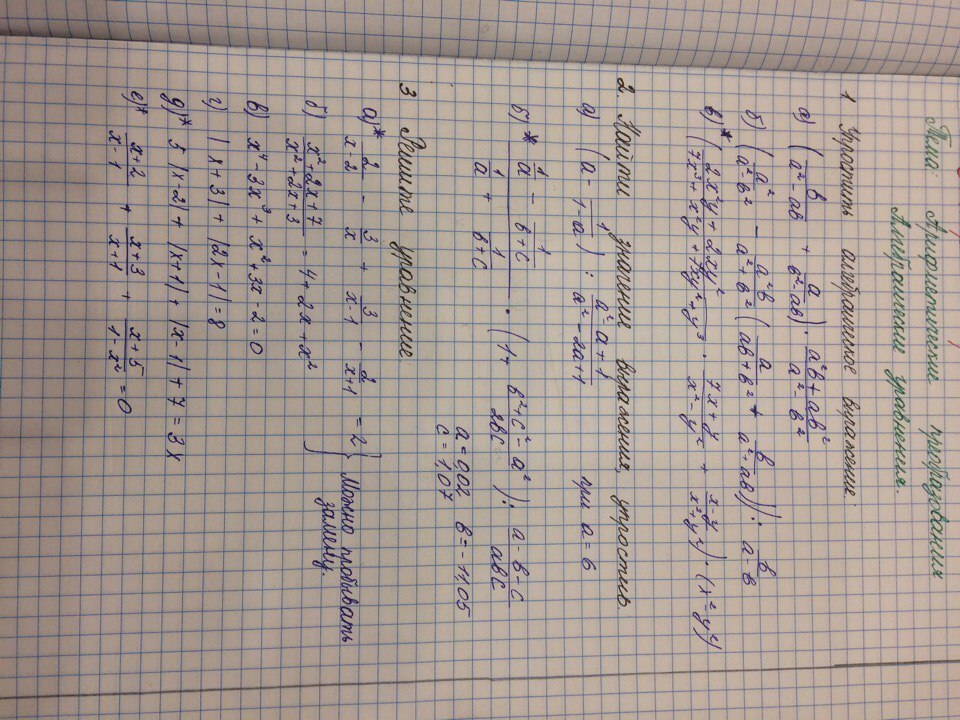 Тема: Арифметические преобразования
Алгебраические уравнения.
1 Упростить алгебраическое выражение:
а) (b/(a²-ab) + a/(b²-ab)) · (a²b+ab²)/(a²-b²)
б) (a²/(a²-b²) - a²b/(a²+b²) (a/(ab+b²) + b/(a²+ab))) : b/(a-b)
в)* ((2x²y+2xy²)/(7x³+x²y+7xy²+y³) · (7x+y)/(x²-y²) + (x-y)/(x²+y²)) · (x²-y²)
2. Найти значение выражения, упростив:
а) (a - 1/(1-a)) : (a²-a+1)/(a²-2a+1) при a=6
б)* (1/a - 1/(b+c))/(1/a + 1/(b+c)) · (1+ (b²+c²-a²)/2bc) : (a-b-c)/abc
a=0,02 b=-11,05
c=1,07
3 Решите уравнение
а)* 2/(x-2) - 3/x + 3/(x-1) - 2/(x+1) = 2
б) (x²+2x+7)/(x²+2x+3) = 4+2x+x²
} Можно пробывать
замену.
в) x⁴-3x³+x²+3x-2=0
г) |x+3|+|2x-1|=8
д)* 5|x-2|+|x+1|+|x-1|+7=3x
е)* (x+2)/(x-1) + (x+3)/(x+1) + (x+5)/(1-x²) = 0